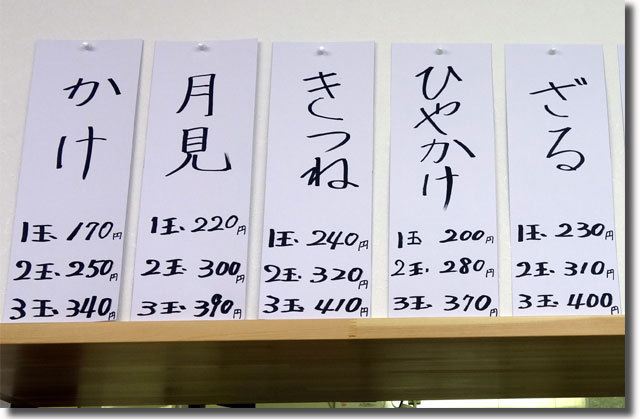 かけ
1玉、170円
2玉、250円
3玉、340円
月見
1玉、220円
2玉、300円
3玉、390円
きつね
1玉、240円
2玉、320円
3玉、410円
ひやかけ
1玉 200円
2玉、280円
3玉、370円
ざる
1玉、230円
2玉、310円
3玉、400円